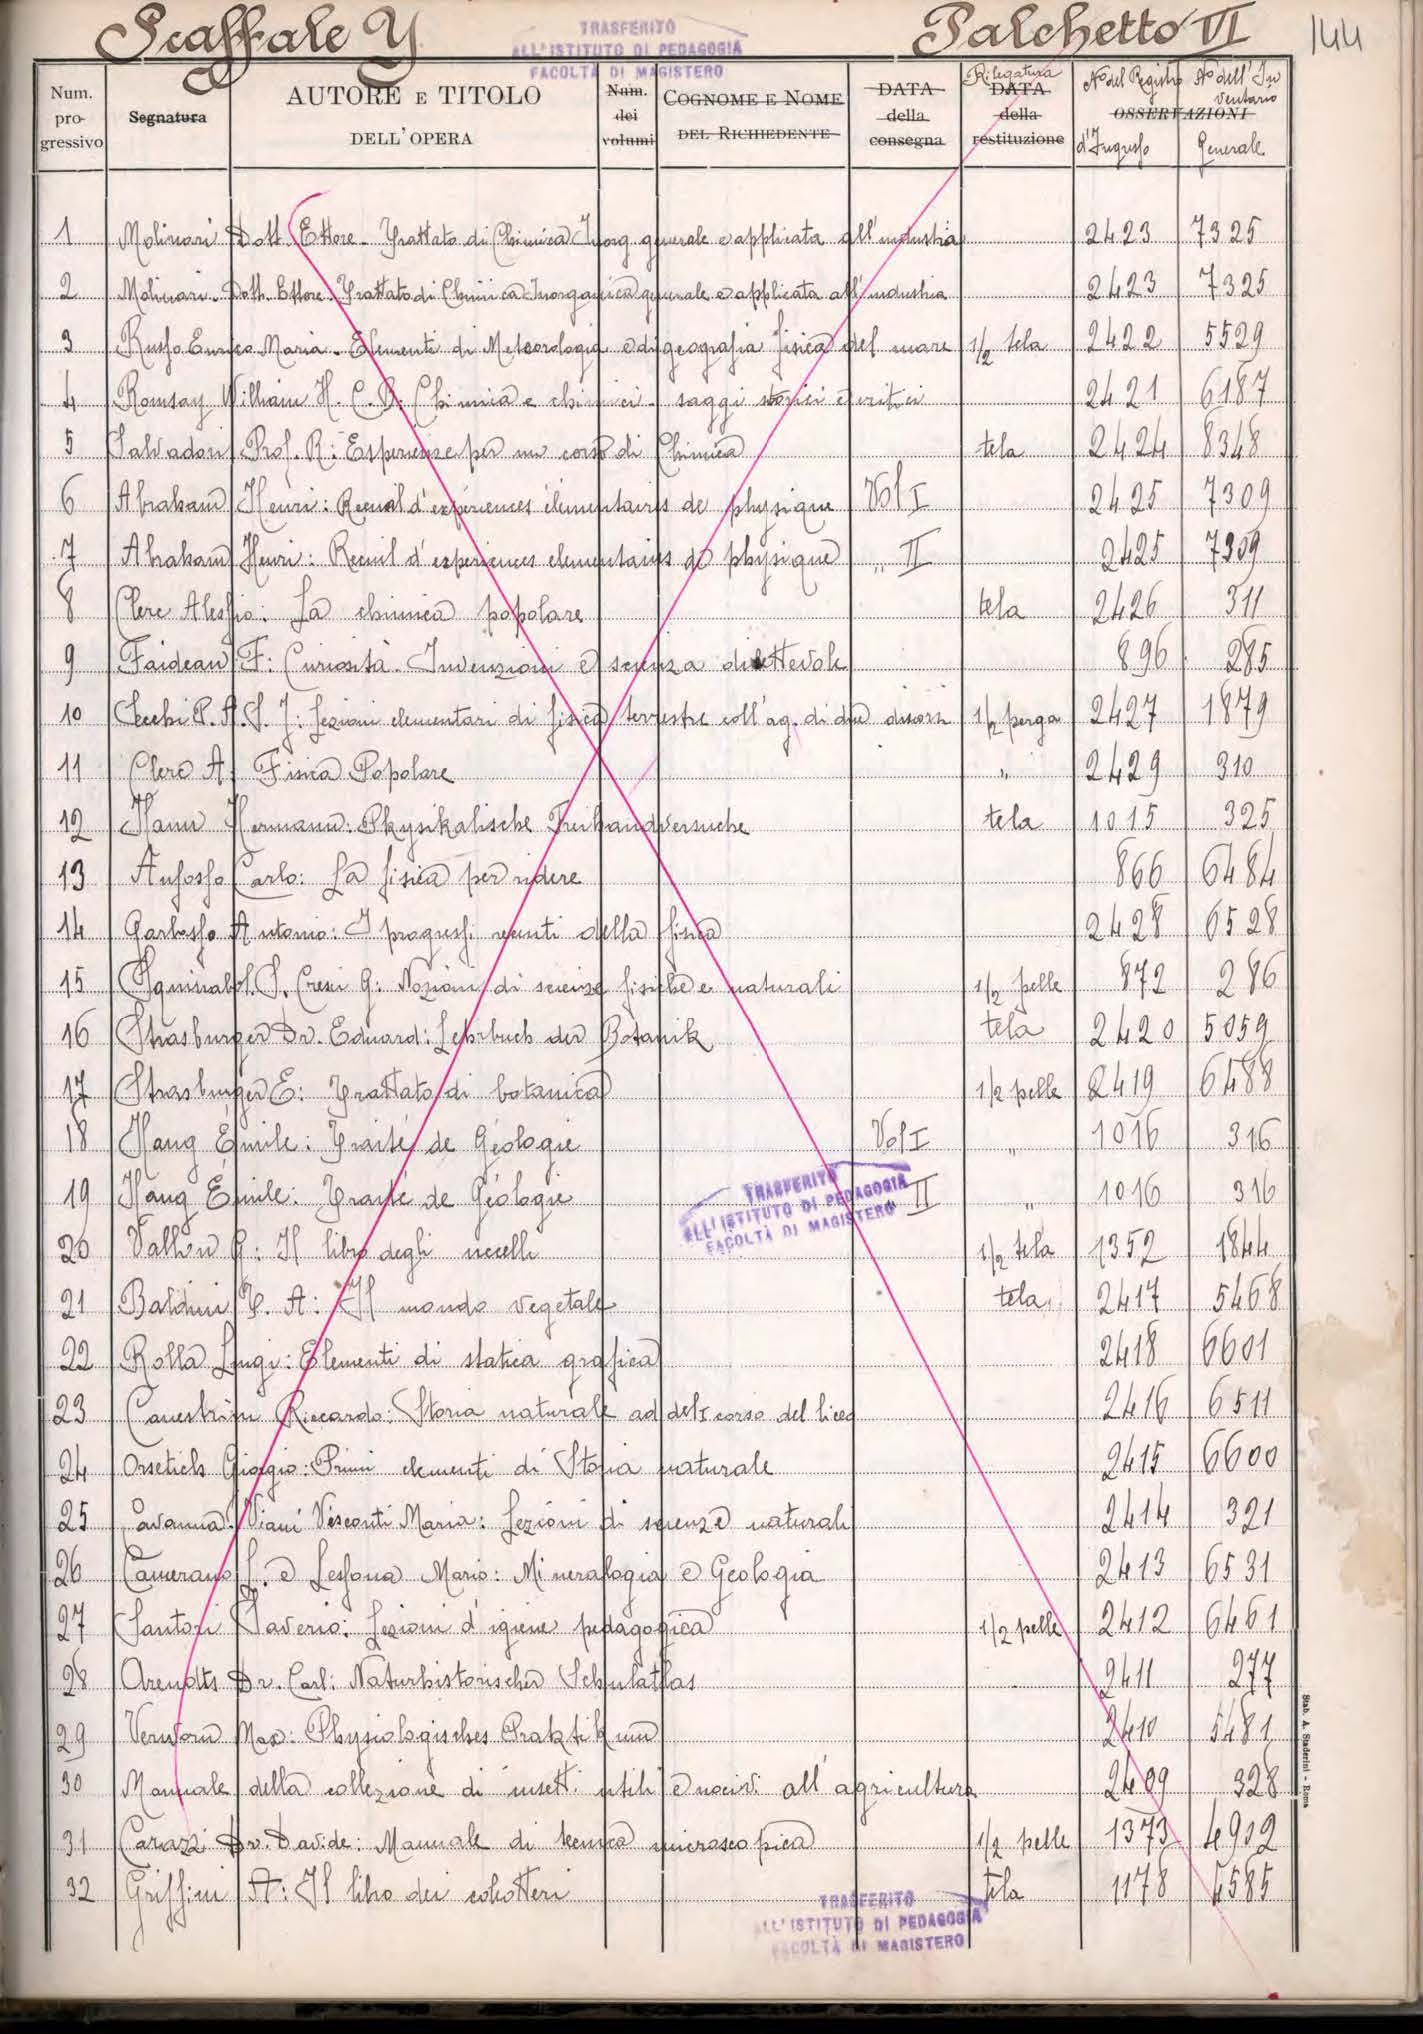 Scaffale Y Palchetto VI 144
TRASFERITO
ALL'ISTITUTO DI PEDAGOGIA
FACOLTÀ DI MAGISTERO
Num. progressivo Segnatura AUTORE E TITOLO DELL'OPERA Num. dei volumi COGNOME E NOME DEL RICHIEDENTE DATA della consegna Rilegatura DATA della restituzione OSSERVAZIONI No del Registro d'Ingresso No dell'Inventario Generale
1 Molinari Dott. Ettore - Trattato di Chimica Inorg. generale e applicata all'industria 2423 7325
2 Molinari - Dott. Ettore. Trattato di Chimica Inorganica generale e applicata all'industria 2423 7325
3 Russo Enrico Maria - Elementi di Meteorologia e di geografia fisica del mare 1/2 tela 2422 5529
4 Romsay William H. C. B: Chimica e chimici - saggi storici e critici 2421 6187
5 Salvadori Prof. R: Esperienze per un corso di Chimica tela 2424 8348
6 Abraham Henri: Recueil d'expériences élémentaires de physique Vol I 2425 7309
7 Abraham Henri: Recueil d'experiences elementaires de physique " II 2425 7309
8 Clerc Alessio: La chimica popolare tela 2426 311
9 Faideau F: Curiosità - Invenzioni e scienza dilettevole 896 285
10 Secchi P. A. S. J: Lezioni elementari di fisica terrestre coll'ag. di due discorsi 1/2 perga 2427 1879
11 Clerc A. Fisica Popolare " 2429 310
12 Hann Hermann: Physikalische Freihandversuche tela 1015 325
13 Anfosso Carlo: La fisica per ridere 866 6484
14 Garbasso Antonio: I progressi recenti della fisica 2428 6528
15 Squinabol. S. Cresci G: Nozioni di scienze fisiche e naturali 1/2 pelle 872 286
16 Strasburger Dr. Eduard: Lehrbuch der Botanik tela 2420 5059
17 Strasburger E: Trattato di botanica 1/2 pelle 2419 6488
18 Haug Émile: Traité de Géologie Vol I " 1016 316
19 Haug Émile: Traité de Géologie " II " 1016 316
TRASFERITO
ALL'ISTITUTO DI PEDAGOGIA
FACOLTÀ DI MAGISTERO
20 Vallon G: Il libro degli uccelli 1/2 tela 1352 1844
21 Baldini T. A: Il mondo vegetale tela 2417 5468
22 Rolla Luigi: Elementi di statica grafica 2418 6601
23 Canestrini Riccardo: Storia naturale ad del I corso del liceo 2416 6511
24 Orsetich Giorgio: Primi elementi di Storia naturale 2415 6600
25 Cavanna. Viani Visconti Maria: Lezioni di scienze naturali 2414 321
26 Camerano L. e Lessona Mario: Mineralogia e Geologia 2413 6531
27 Santori Saverio: Lezioni d'igiene pedagogica 1/2 pelle 2412 6461
28 Arendts Dr. Carl: Naturhistorischer Schulatlas 2411 277
29 Verworn Max: Physiologisches Praktikum 2410 5481
30 Manuale della collezione di insetti utili e nocivi all'agricoltura 2409 328
31 Carazzi Dr. Davide: Manuale di tecnica microscopica 1/2 pelle 1373 4902
32 Griffini A: Il libro dei coleotteri tela 1178 4585
TRASFERITO
ALL'ISTITUTO DI PEDAGOGIA
FACOLTÀ DI MAGISTERO
Stab. A. Staderini - Roma